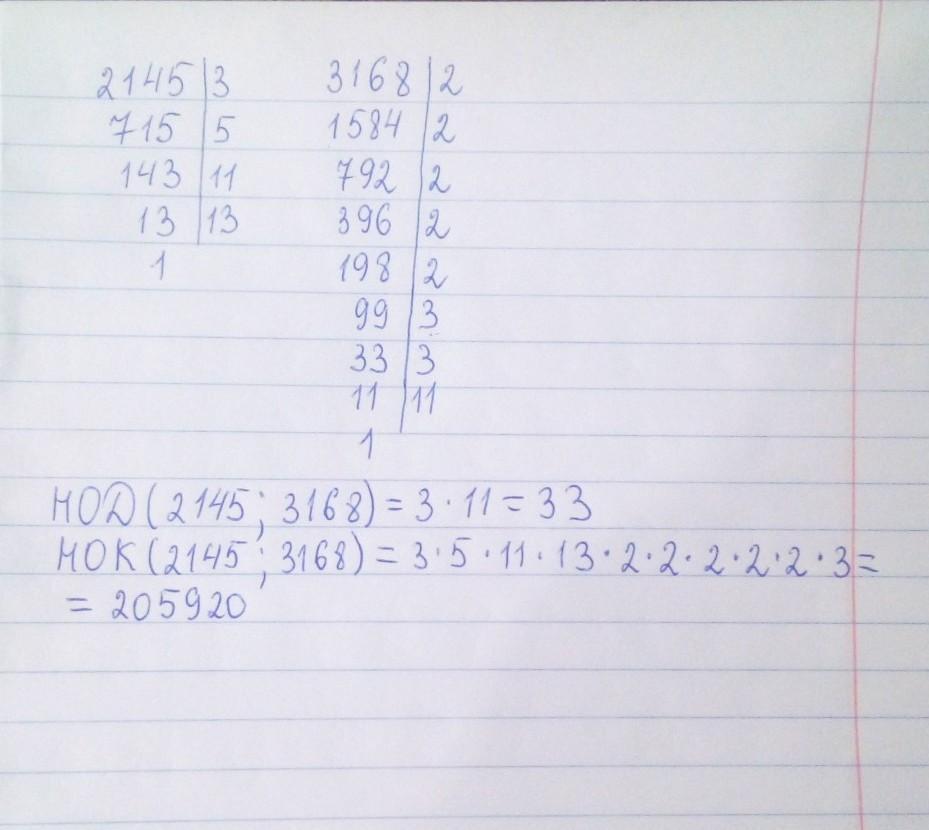 2145 | 3 3168 | 2
715 | 5 1584 | 2
143 | 11 792 | 2
13 | 13 396 | 2
1 198 | 2
99 | 3
33 | 3
11 | 11
1
НОД (2145; 3168) = 3 · 11 = 33
НОК (2145; 3168) = 3 · 5 · 11 · 13 · 2 · 2 · 2 · 2 · 2 · 3 =
= 205920